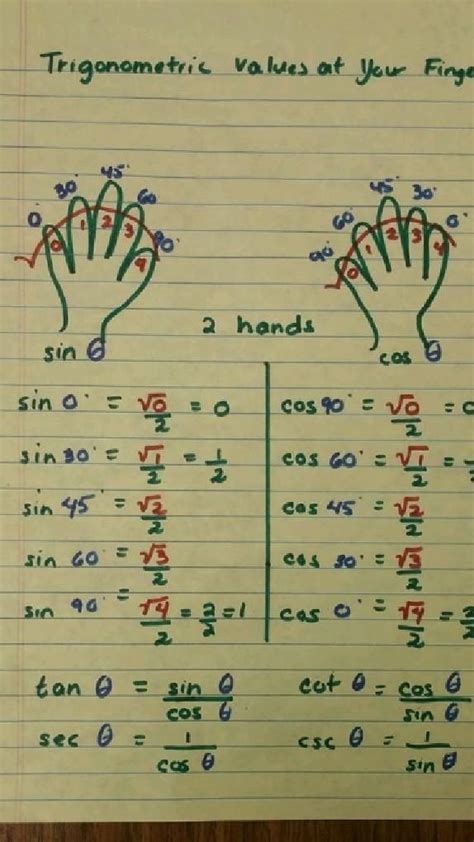 Trigonometric values at Your Finge
0° 30° 45° 60 90°
√ 0 1 2 3 4
sin θ
2 hands
90° 60° 45° 30° 0°
√ 0 1 2 3 4
cos θ
sin 0° = √0/2 = 0
sin 30° = √1/2 = 1/2
sin 45° = √2/2
sin 60° = √3/2
sin 90° = √4/2 = 2/2 = 1
cos 90° = √0/2 = 0
cos 60° = √1/2 =
cos 45° = √2/2
cos 30° = √3/2
cos 0° = √4/2 = 2/2
tan θ = sin θ/cos θ
cot θ = cos θ/sin θ
sec θ = 1/cos θ
csc θ = 1/sin θ